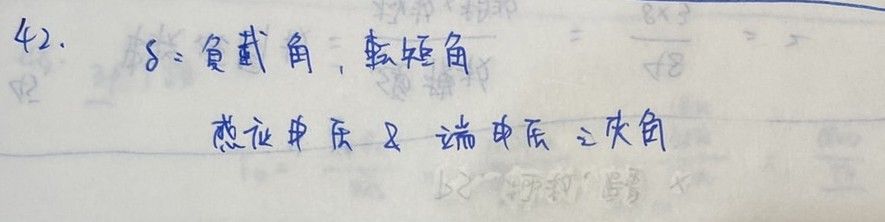 42. δ: 負載角, 転矩角
感应电压 & 端电压之夾角